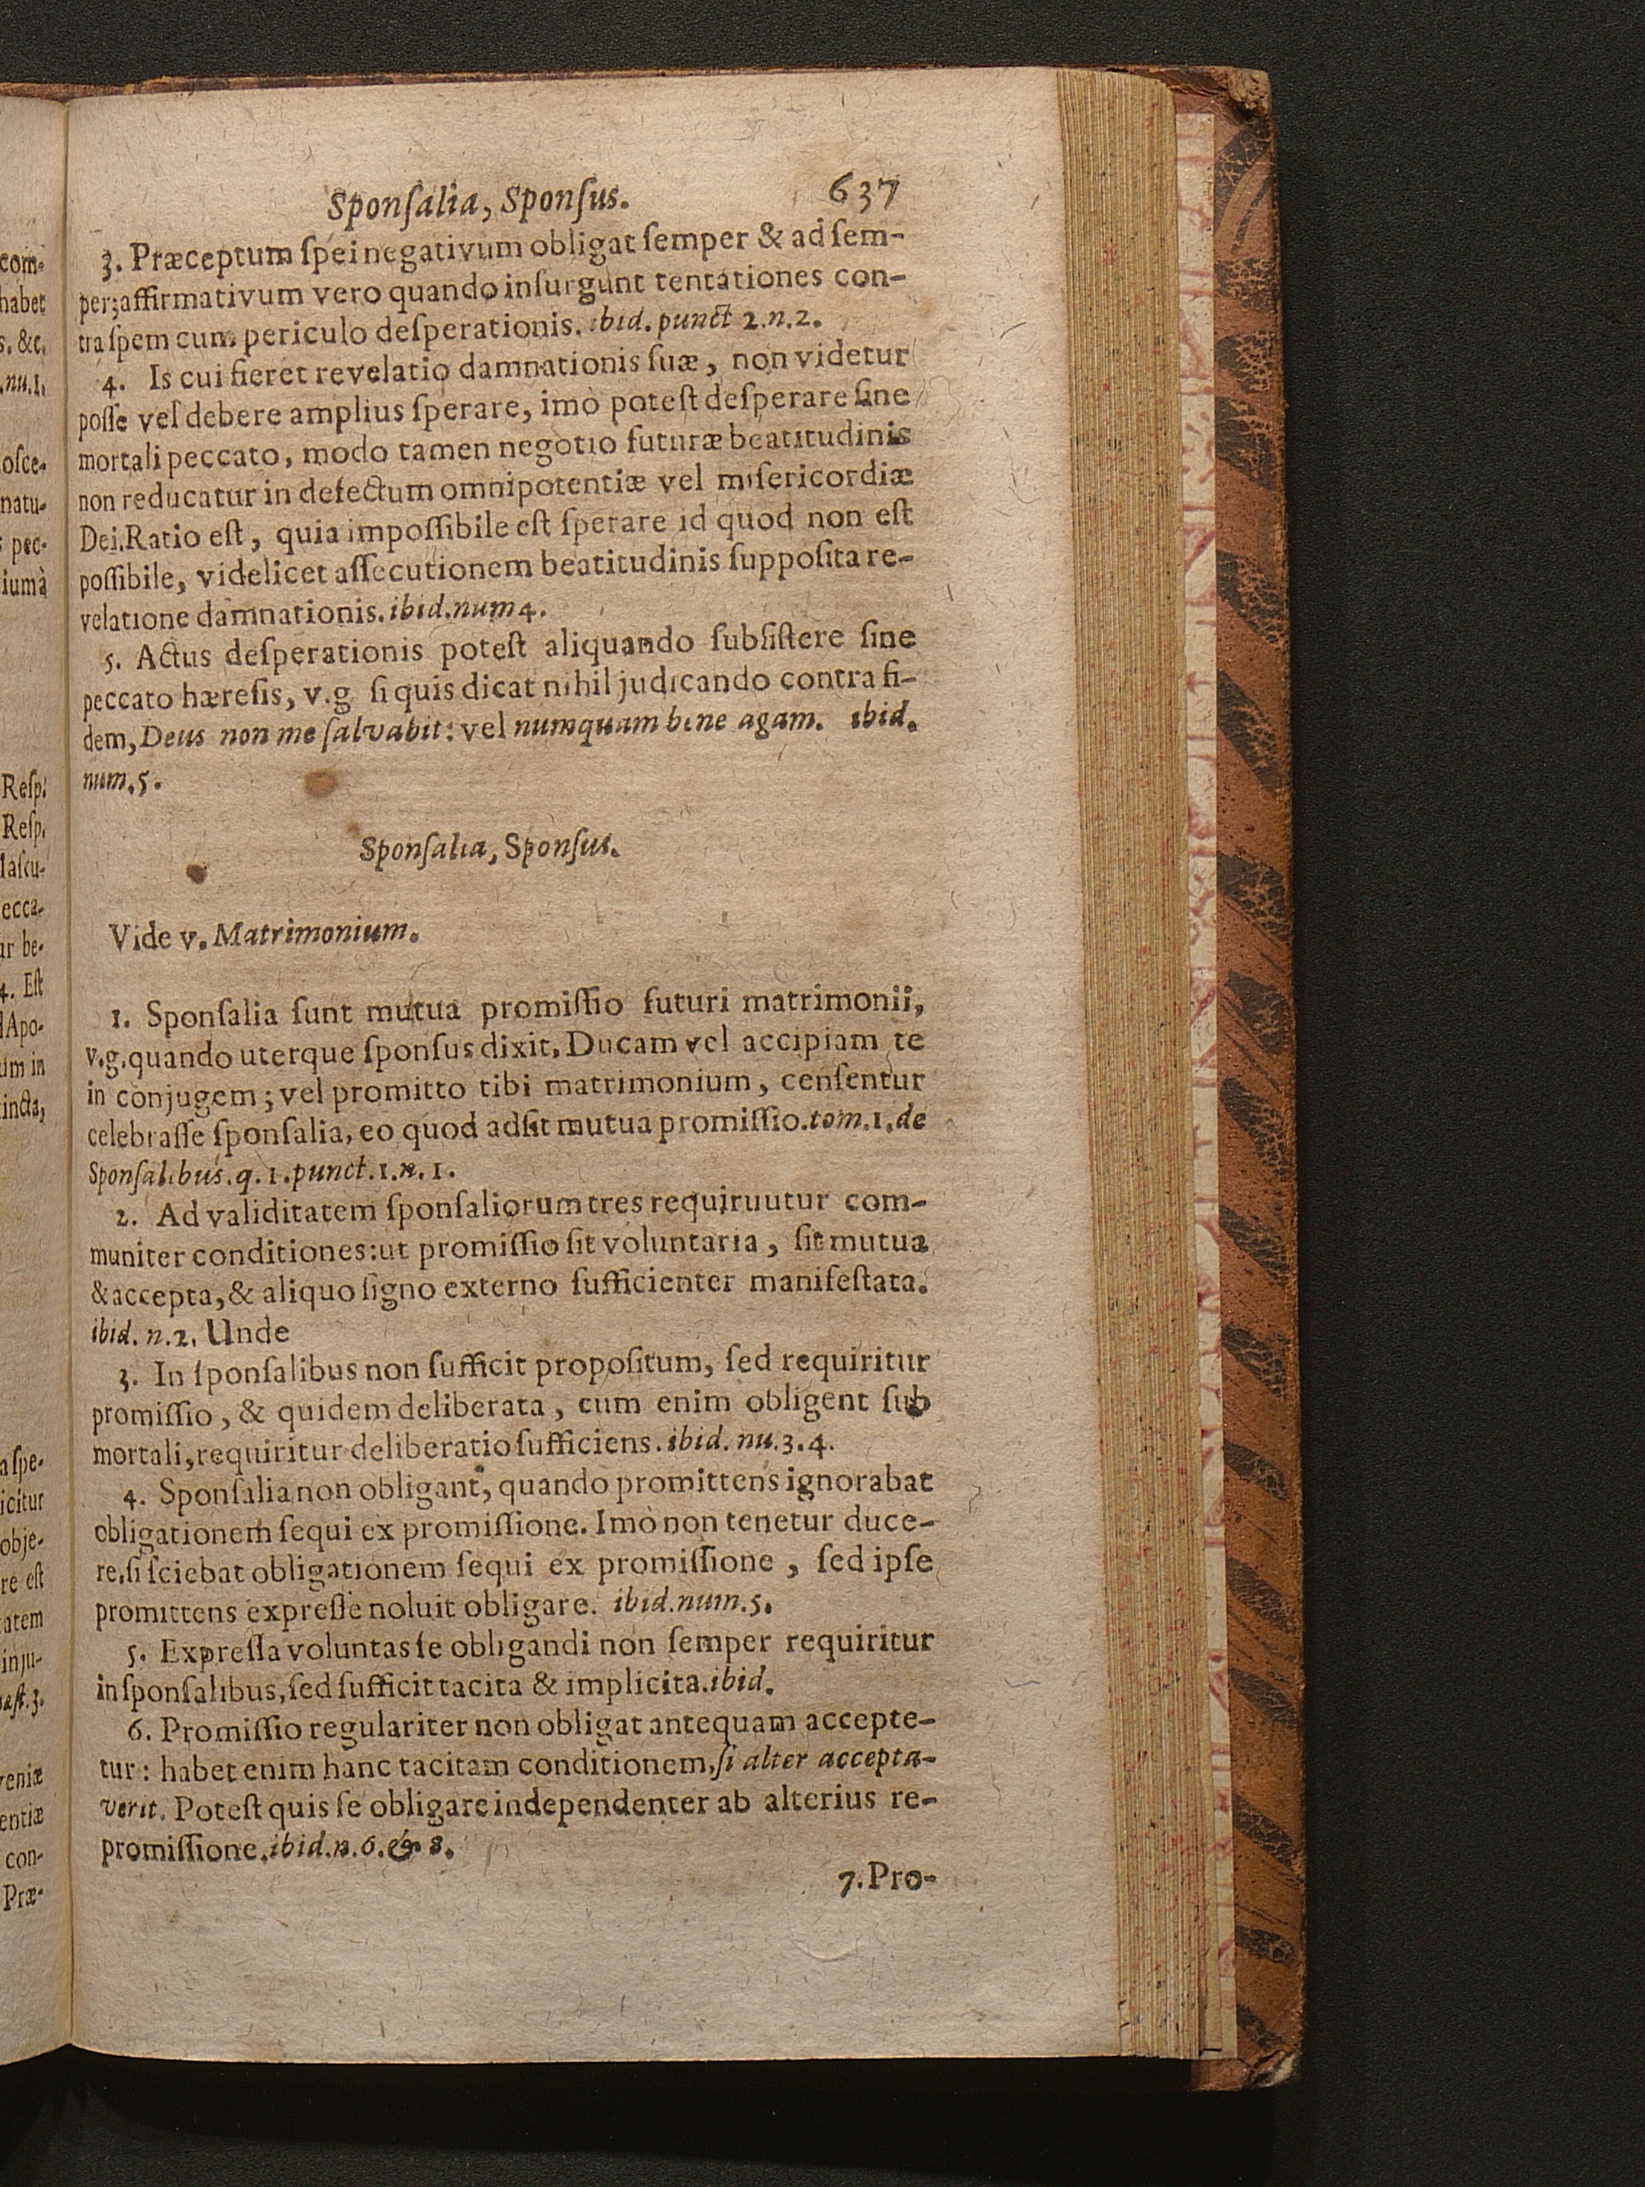 Sponſalia, Sponſus. 637
3. Præceptum ſpei negativum obligat ſemper & ad ſem-
per; affirmativum vero quando inſurgunt tentationes con-
tra ſpem cum periculo deſperationis. ibid. punct 2. n. 2.
4. Is cui fieret revelatio damnationis ſuæ, non videtur
poſſe vel debere amplius ſperare, imò poteſt deſperare ſine
mortali peccato, modo tamen negotio futuræ beatitudinis
non reducatur in defectum omnipotentiæ vel miſericordiæ
Dei. Ratio eſt, quia impoſſibile eſt ſperare id quod non eſt
poſſibile, videlicet aſſecutionem beatitudinis ſuppoſita re-
velatione damnationis. ibid. num 4.
5. Actus deſperationis poteſt aliquando ſubſiſtere ſine
peccato hæreſis, v.g ſi quis dicat nihil judicando contra fi-
dem, Deus non me ſalvabit: vel numquam bene agam. ibid.
num. 5.
Sponſalia, Sponſus.
Vide v. Matrimonium.
1. Sponſalia ſunt mutua promiſſio futuri matrimonii,
v.g. quando uterque ſponſus dixit. Ducam vel accipiam te
in conjugem; vel promitto tibi matrimonium, cenſentur
celebraſſe ſponſalia, eo quod adſit mutua promiſſio. tom. 1. de
Sponſalibus. q. 1. punct. 1. n. 1.
2. Ad validitatem ſponſaliorum tres requiruutur com-
muniter conditiones: ut promiſſio ſit voluntaria, ſit mutua
& accepta, & aliquo ſigno externo ſufficienter manifeſtata.
ibid. n. 2. Unde
3. In ſponſalibus non ſufficit propoſitum, ſed requiritur
promiſſio, & quidem deliberata, cum enim obligent ſub
mortali, requiritur deliberatio ſufficiens. ibid. nu. 3. 4.
4. Sponſalia non obligant, quando promittens ignorabat
obligationem ſequi ex promiſſione. Imò non tenetur duce-
re, ſi ſciebat obligationem ſequi ex promiſſione, ſed ipſe
promittens expreſſe noluit obligare. ibid. num. 5.
5. Expreſſa voluntas ſe obligandi non ſemper requiritur
in ſponſalibus, ſed ſufficit tacita & implicita. ibid.
6. Promiſſio regulariter non obligat antequam accepte-
tur: habet enim hanc tacitam conditionem, ſi alter accepta-
verit. Poteſt quis ſe obligare independenter ab alterius re-
promiſſione. ibid. n. 6. & 8.
7. Pro-